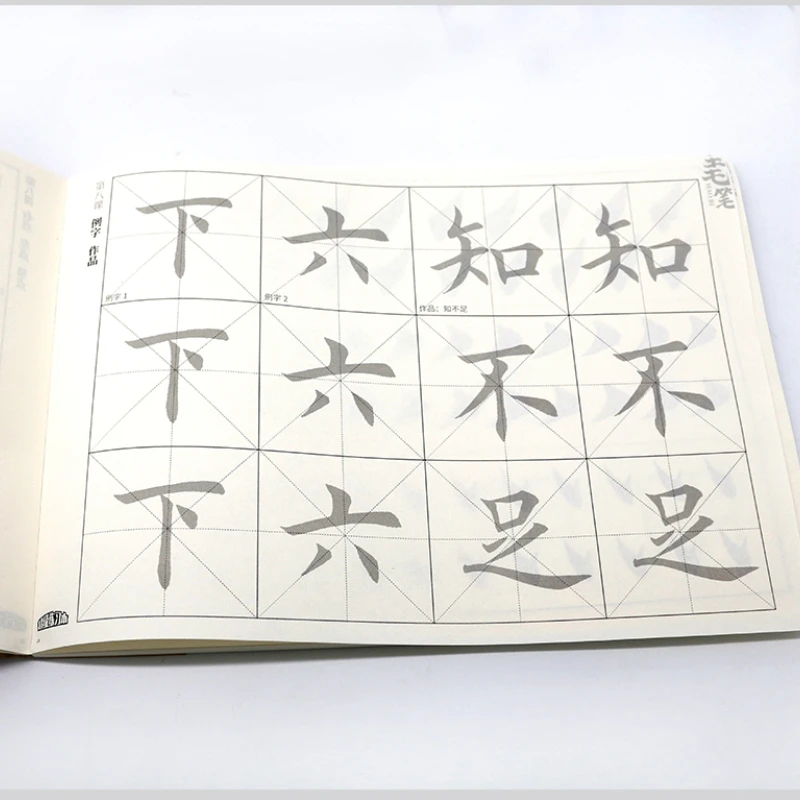 第八课 例字 作品
毛笔
下 六 知 知
例字 1 例字 2 作品：知不足
下 六 不 不
下 六 足 足